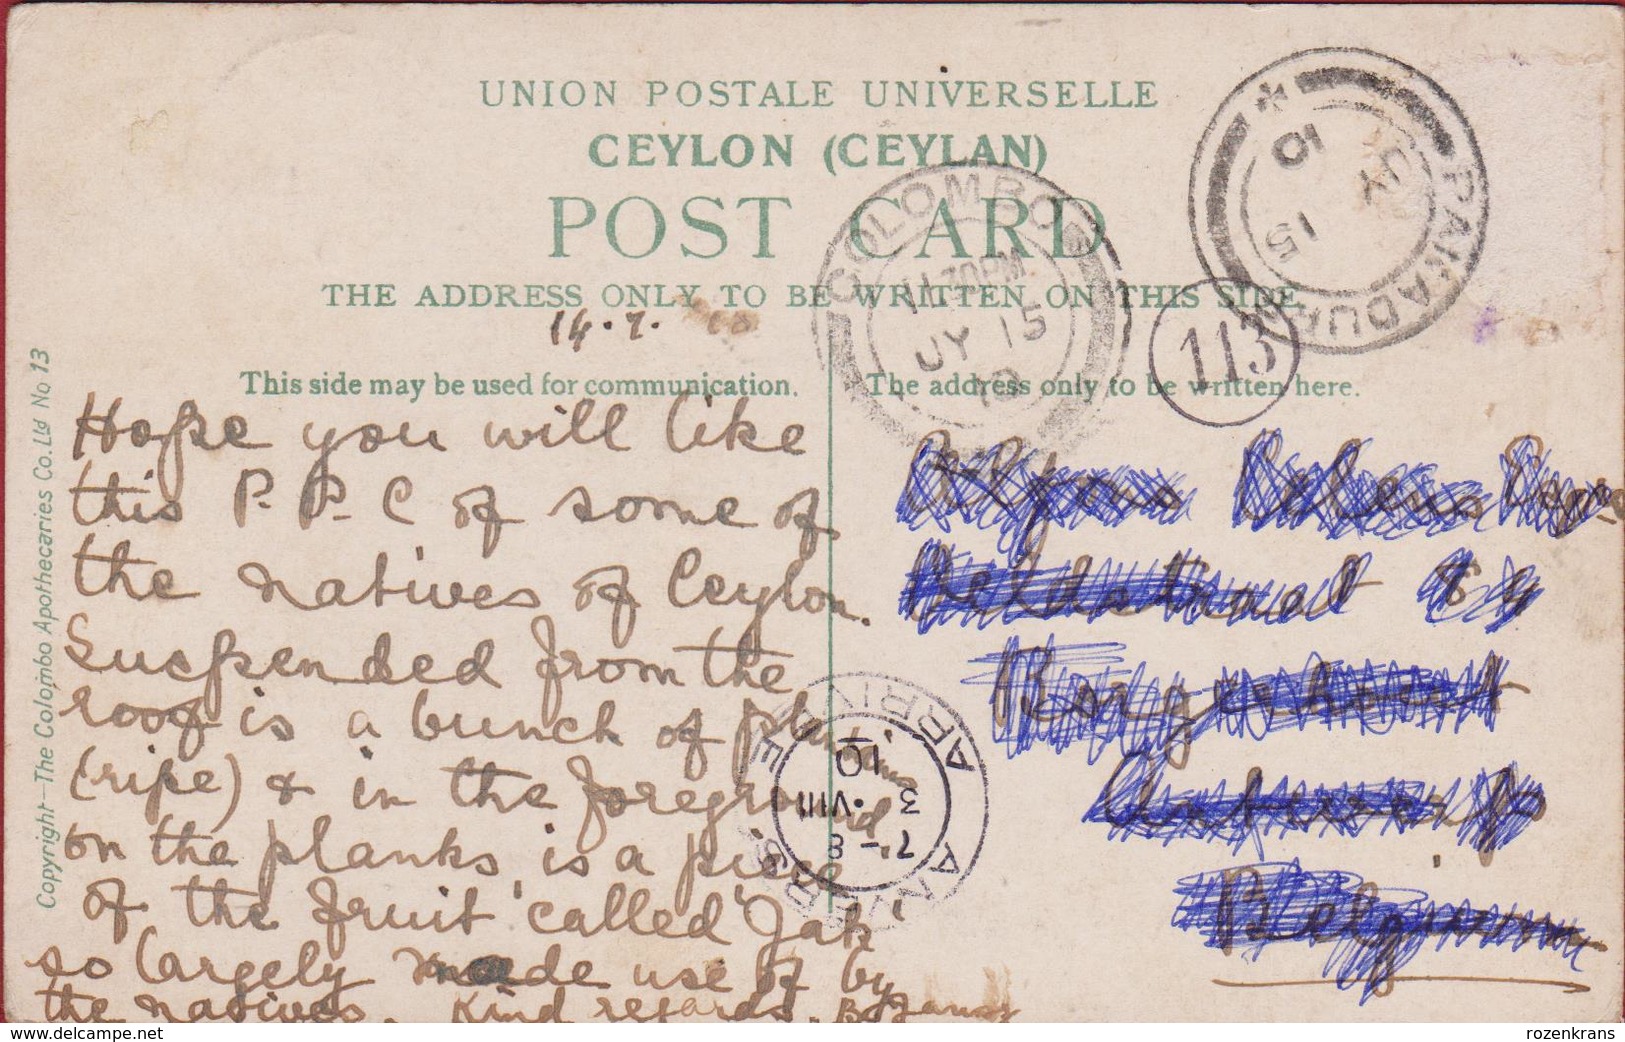 UNION POSTALE UNIVERSELLE
CEYLON (CEYLAN)
POST CARD
THE ADDRESS ONLY TO BE WRITTEN ON THIS SIDE
14.7.
This side may be used for communication.
The address only to be written here.
Hope you will like
this P.P.C of some of
the natives of Ceylon.
Suspended from the
roof is a bunch of
(ripe) & in the foreground
on the planks is a piece
of the fruit called 'Jak'
so largely made use of by
the natives. Kind regards.
Belgium
COLOMBO
11.30PM
JY 15
10
PANADURA
JY 15
10
113
ANVERS
ARRIVEE
7-8
3 .VIII
10
Copyright—The Colombo Apothecaries Co. Ltd No 13
www.delcampe.net
rozenkrans